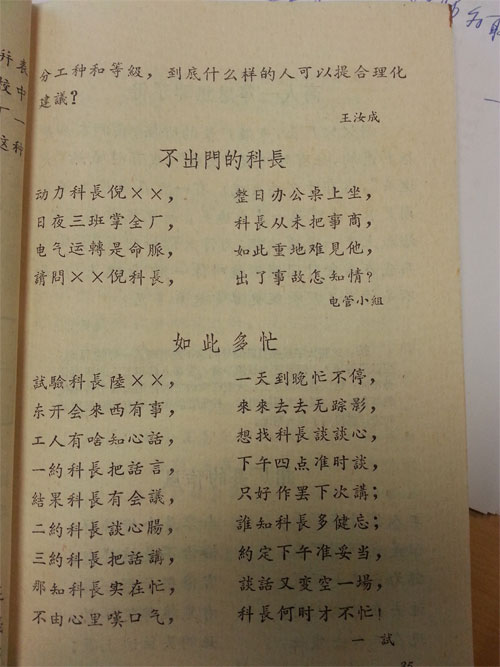 分工种和等級，到底什么样的人可以提合理化
建議？
王汝成
不出門的科長
动力科長倪××，整日办公桌上坐，
日夜三班掌全厂，科長从未把事商，
电气运轉是命脈，如此重地难見他，
請問××倪科長，出了事故怎知情？
电管小組
如此多忙
試驗科長陸××，一天到晚忙不停，
东开会來西有事，來來去去无踪影，
工人有啥知心話，想找科長談談心，
一約科長把話言，下午四点准时談，
結果科長有会議，只好作罢下次講；
二約科長談心腸，誰知科長多健忘；
三約科長把話講，約定下午准妥当，
那知科長实在忙，談話又变空一場，
不由心里嘆口气，科長何时才不忙！
一試